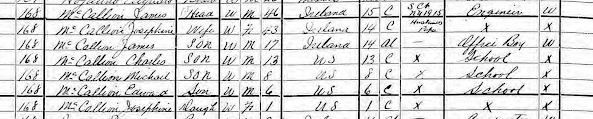 168 McCallion James Head W M 46 Ireland 15 C S Ct NY 1915 Engineer W
168 McCallion Josephine Wife W F 43 Ireland 14 C Husbands Paper X
168 McCallion James SON W M 17 Ireland 14 al — Office Boy W
168 McCallion Charles SON W M 13 US 13 C X School X
168 McCallion Michael SON W M 8 US 8 C X School X
168 McCallion Edward Son W M 6 US 6 C X School X
168 McCallion Josephine Daugh W F 1 US 1 C X X X